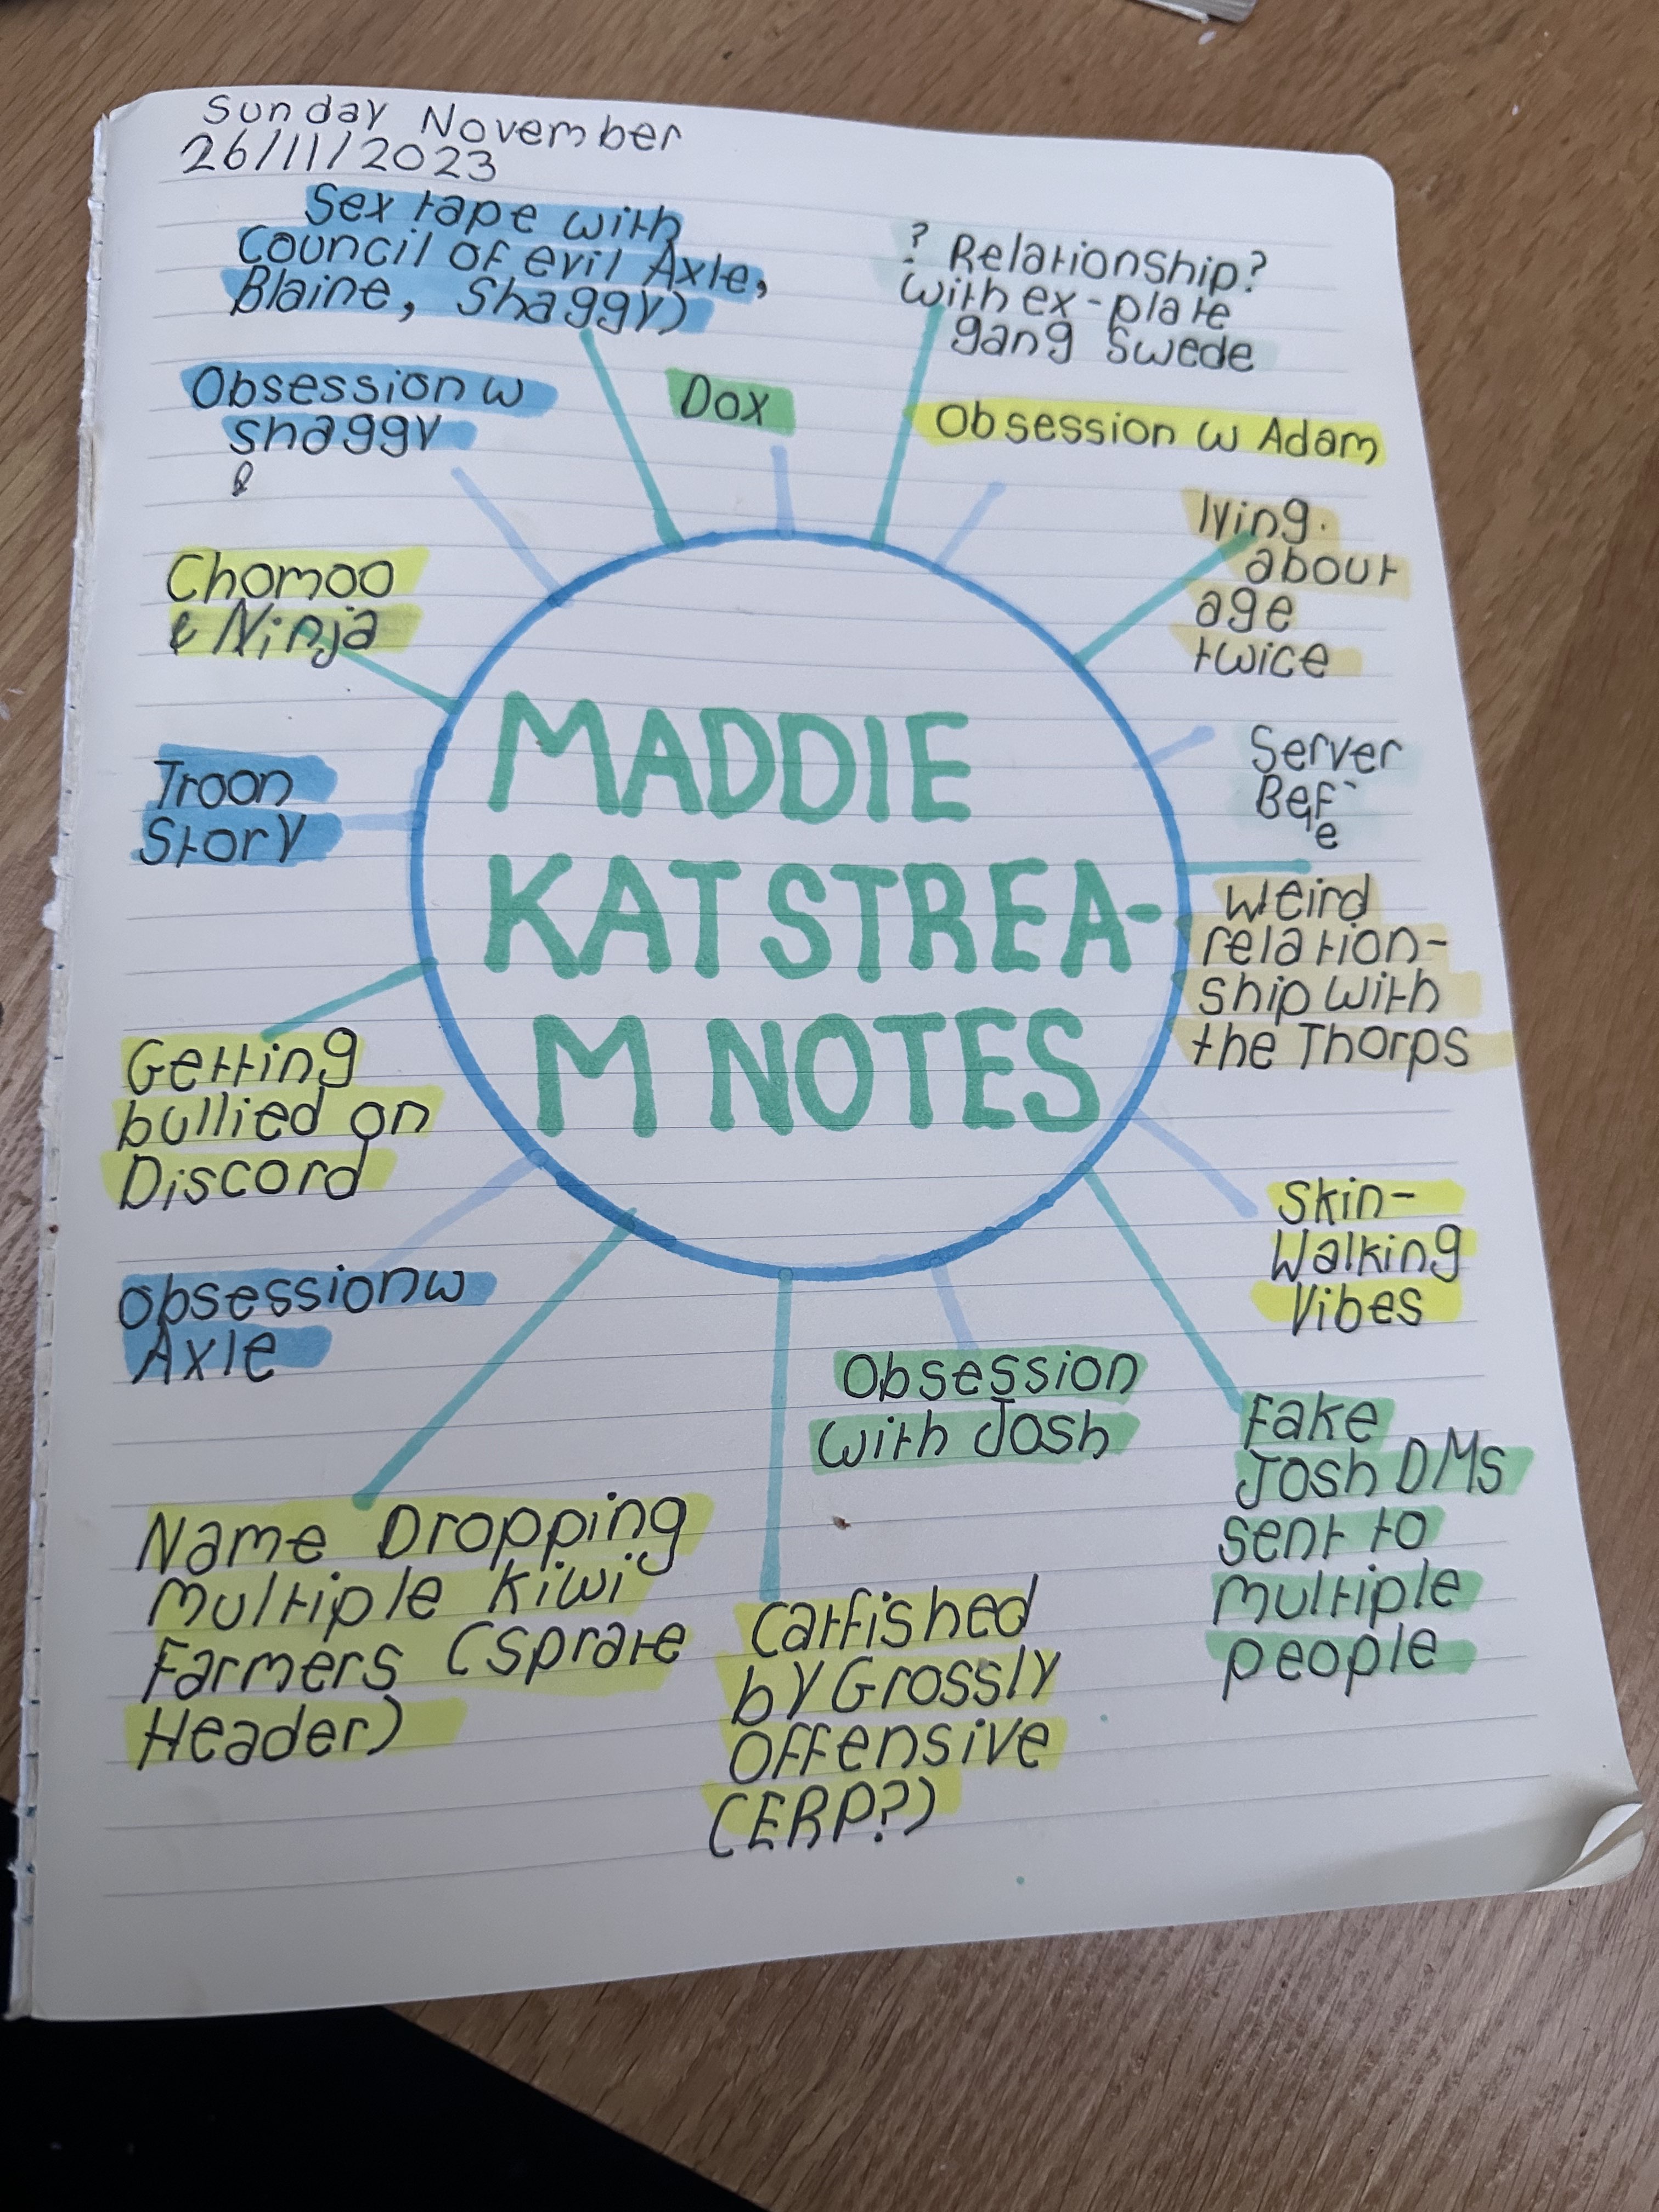 Sunday November
26/11/2023
Sex tape with
Council of evil Axle,
Blaine, Shaggy)
? Relationship?
with ex-plate
gang Swede
Obsession w
shaggy
&
Dox
Obsession w Adam
lying
about
age
twice
Chomoo
& Ninja
Troon
Story
Server
Weird
relation-
ship with
the Thorps
MADDIE
KAT STREA-
M NOTES
Getting
bullied on
Discord
Skin-
Walking
Vibes
obsession w
Axle
Obsession
with Josh
Fake
Josh DMs
sent to
multiple
people
Name Dropping
Multiple kiwi
Farmers (sprate
Header)
Catfished
by Grossly
Offensive
(ERP?)